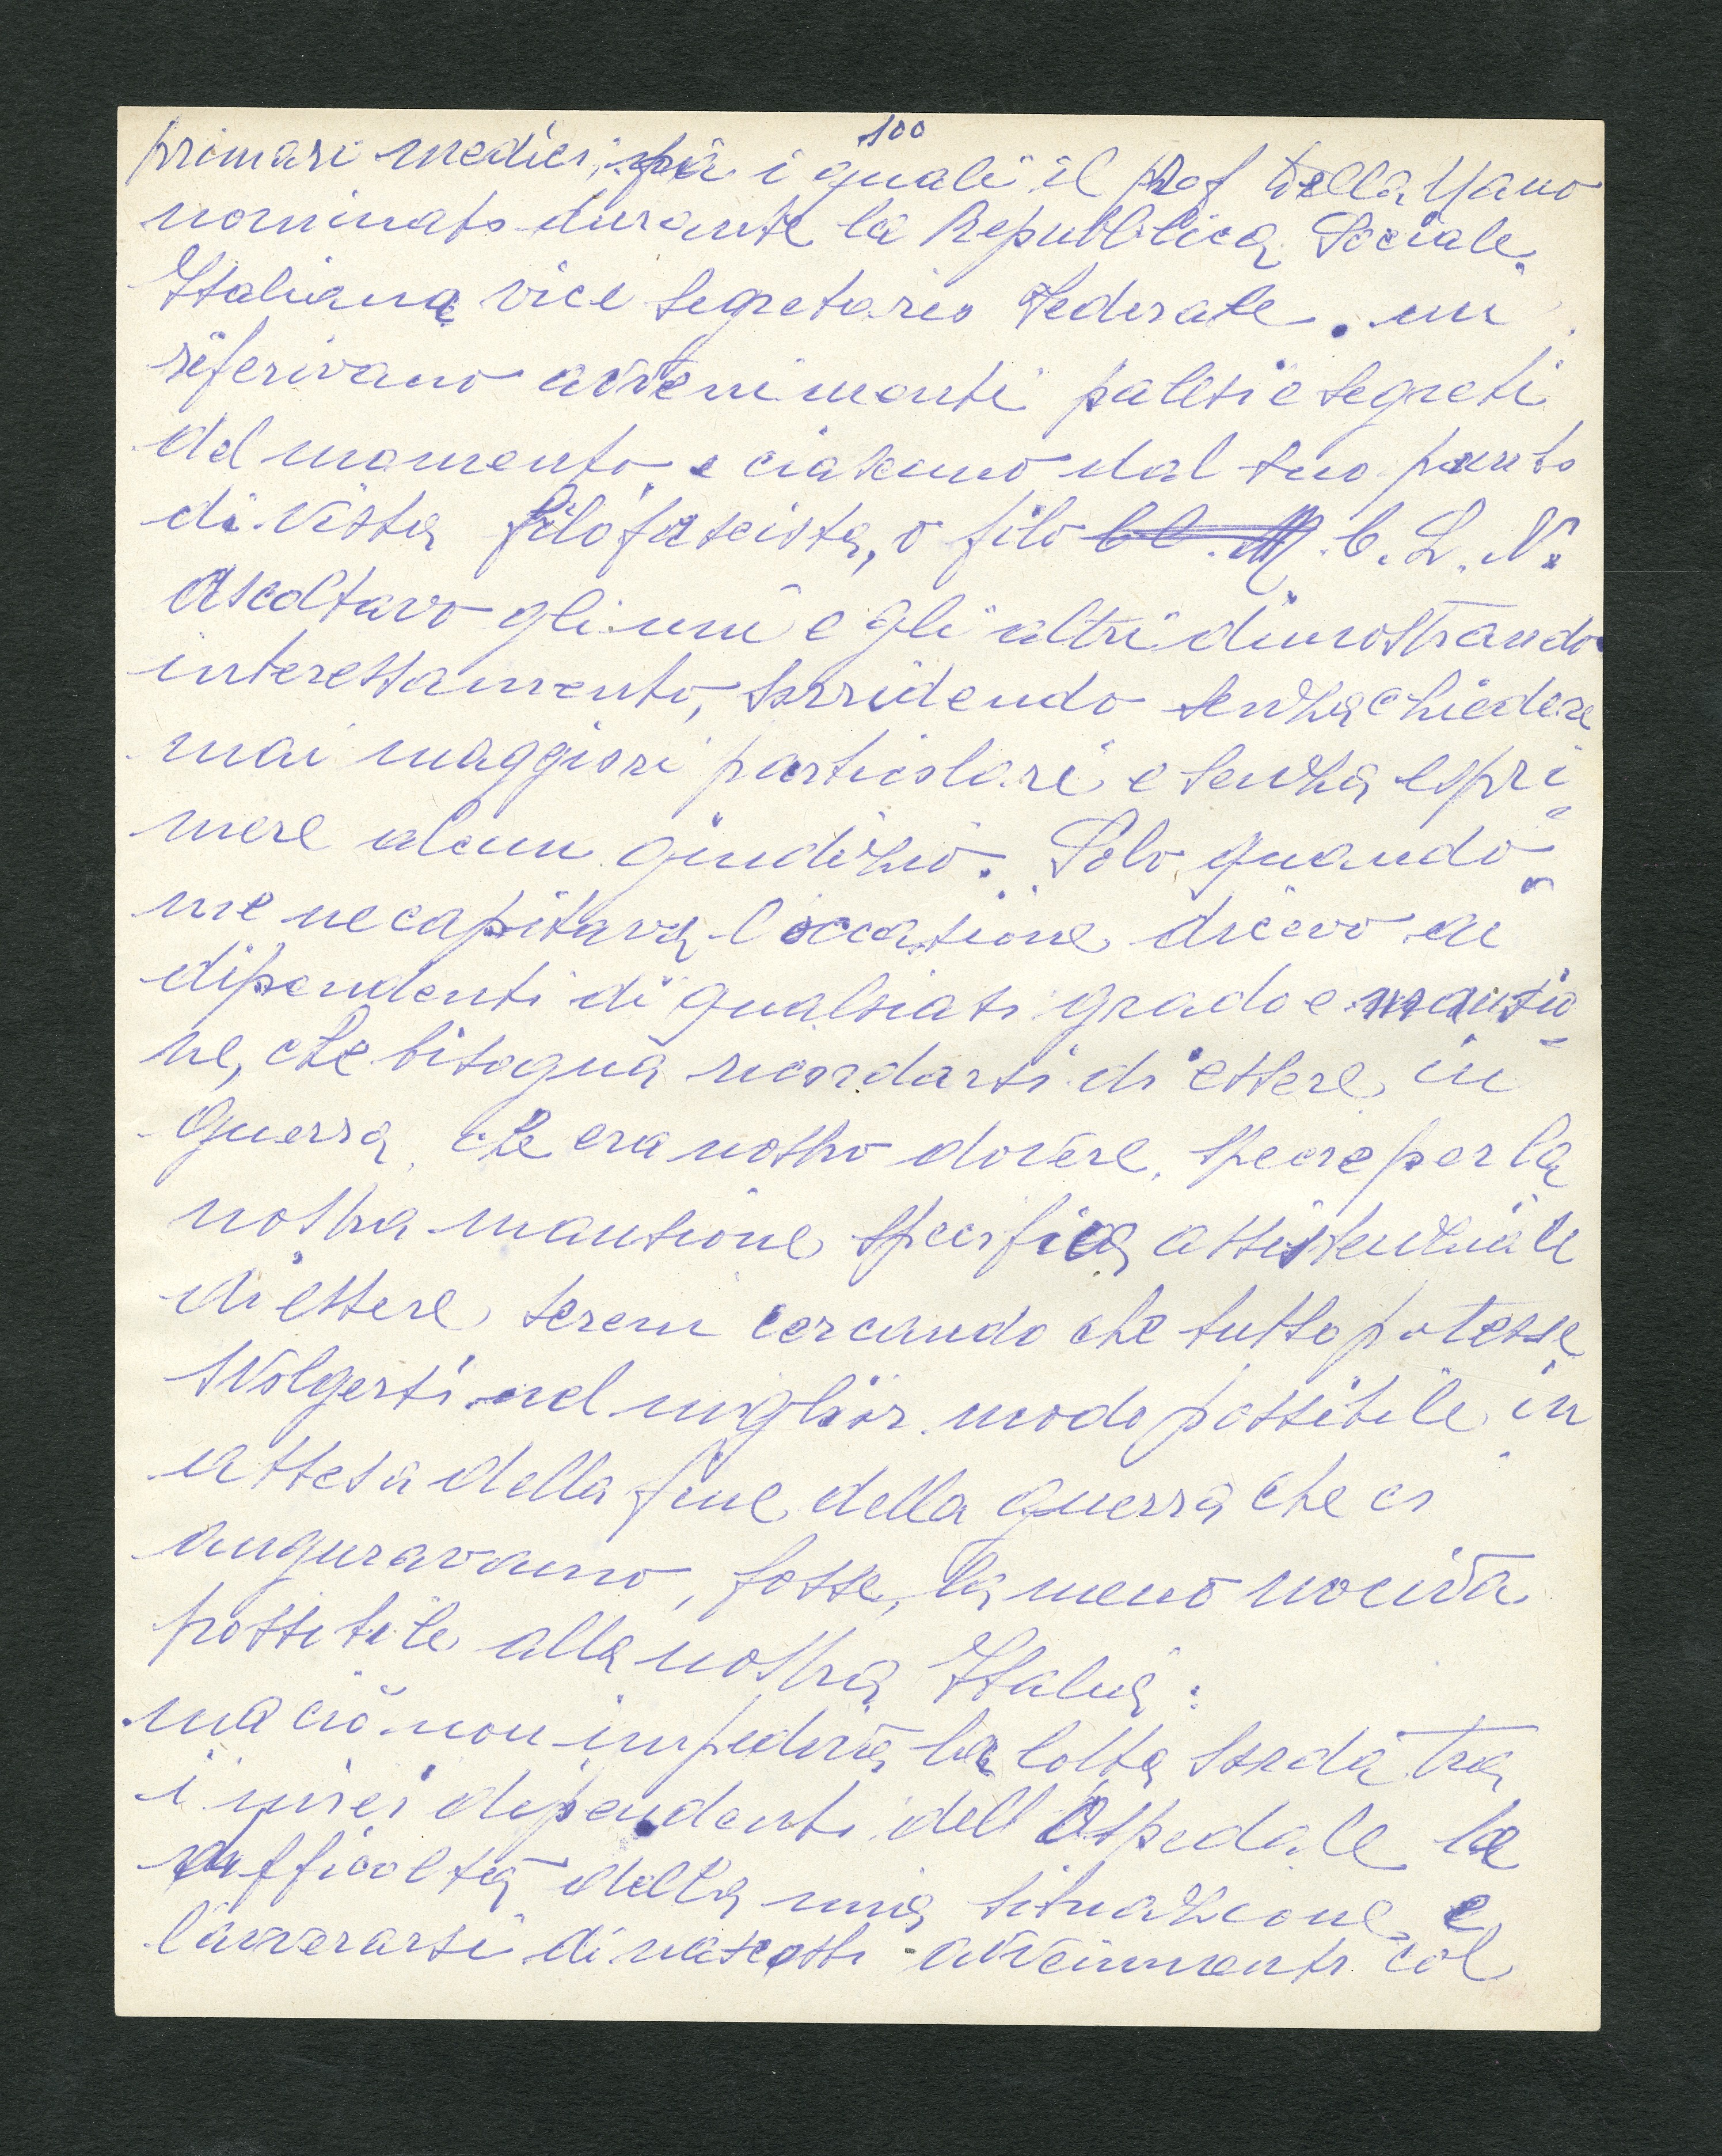 100
primari medici, fra i quali il prof Della Mano
nominato durante la Repubblica Sociale
Italiana vice segretario Federale. mi
riferivano avvenimenti palesi e segreti
del momento, e ciascuno dal suo punto
di vista filofascista, o filo C.L.N.
Ascoltavo gli uni e gli altri dimostrando
interessamento, sorridendo senza chiedere
mai maggiori particolari e senza espri=
mere alcun giudizio. Solo quando
me ne capitava l'occasione dicevo ai
dipendenti di qualsiasi grado e mansio=
ne, che bisogna ricordarsi di essere in
guerra, che era nostro dovere, specie per la
nostra mansione specifica assistenziale
di essere sereni cercando che tutto potesse
svolgersi nel miglior modo possibile in
attesa della fine della guerra che ci
auguravamo, fosse, la meno nociva
possibile alla nostra Italia:
ma ciò non impediva la lotta sorda tra
i miei dipendenti dell'Ospedale le
difficoltà della mia situazione e
l'avverarsi di nascosti avvenimenti col